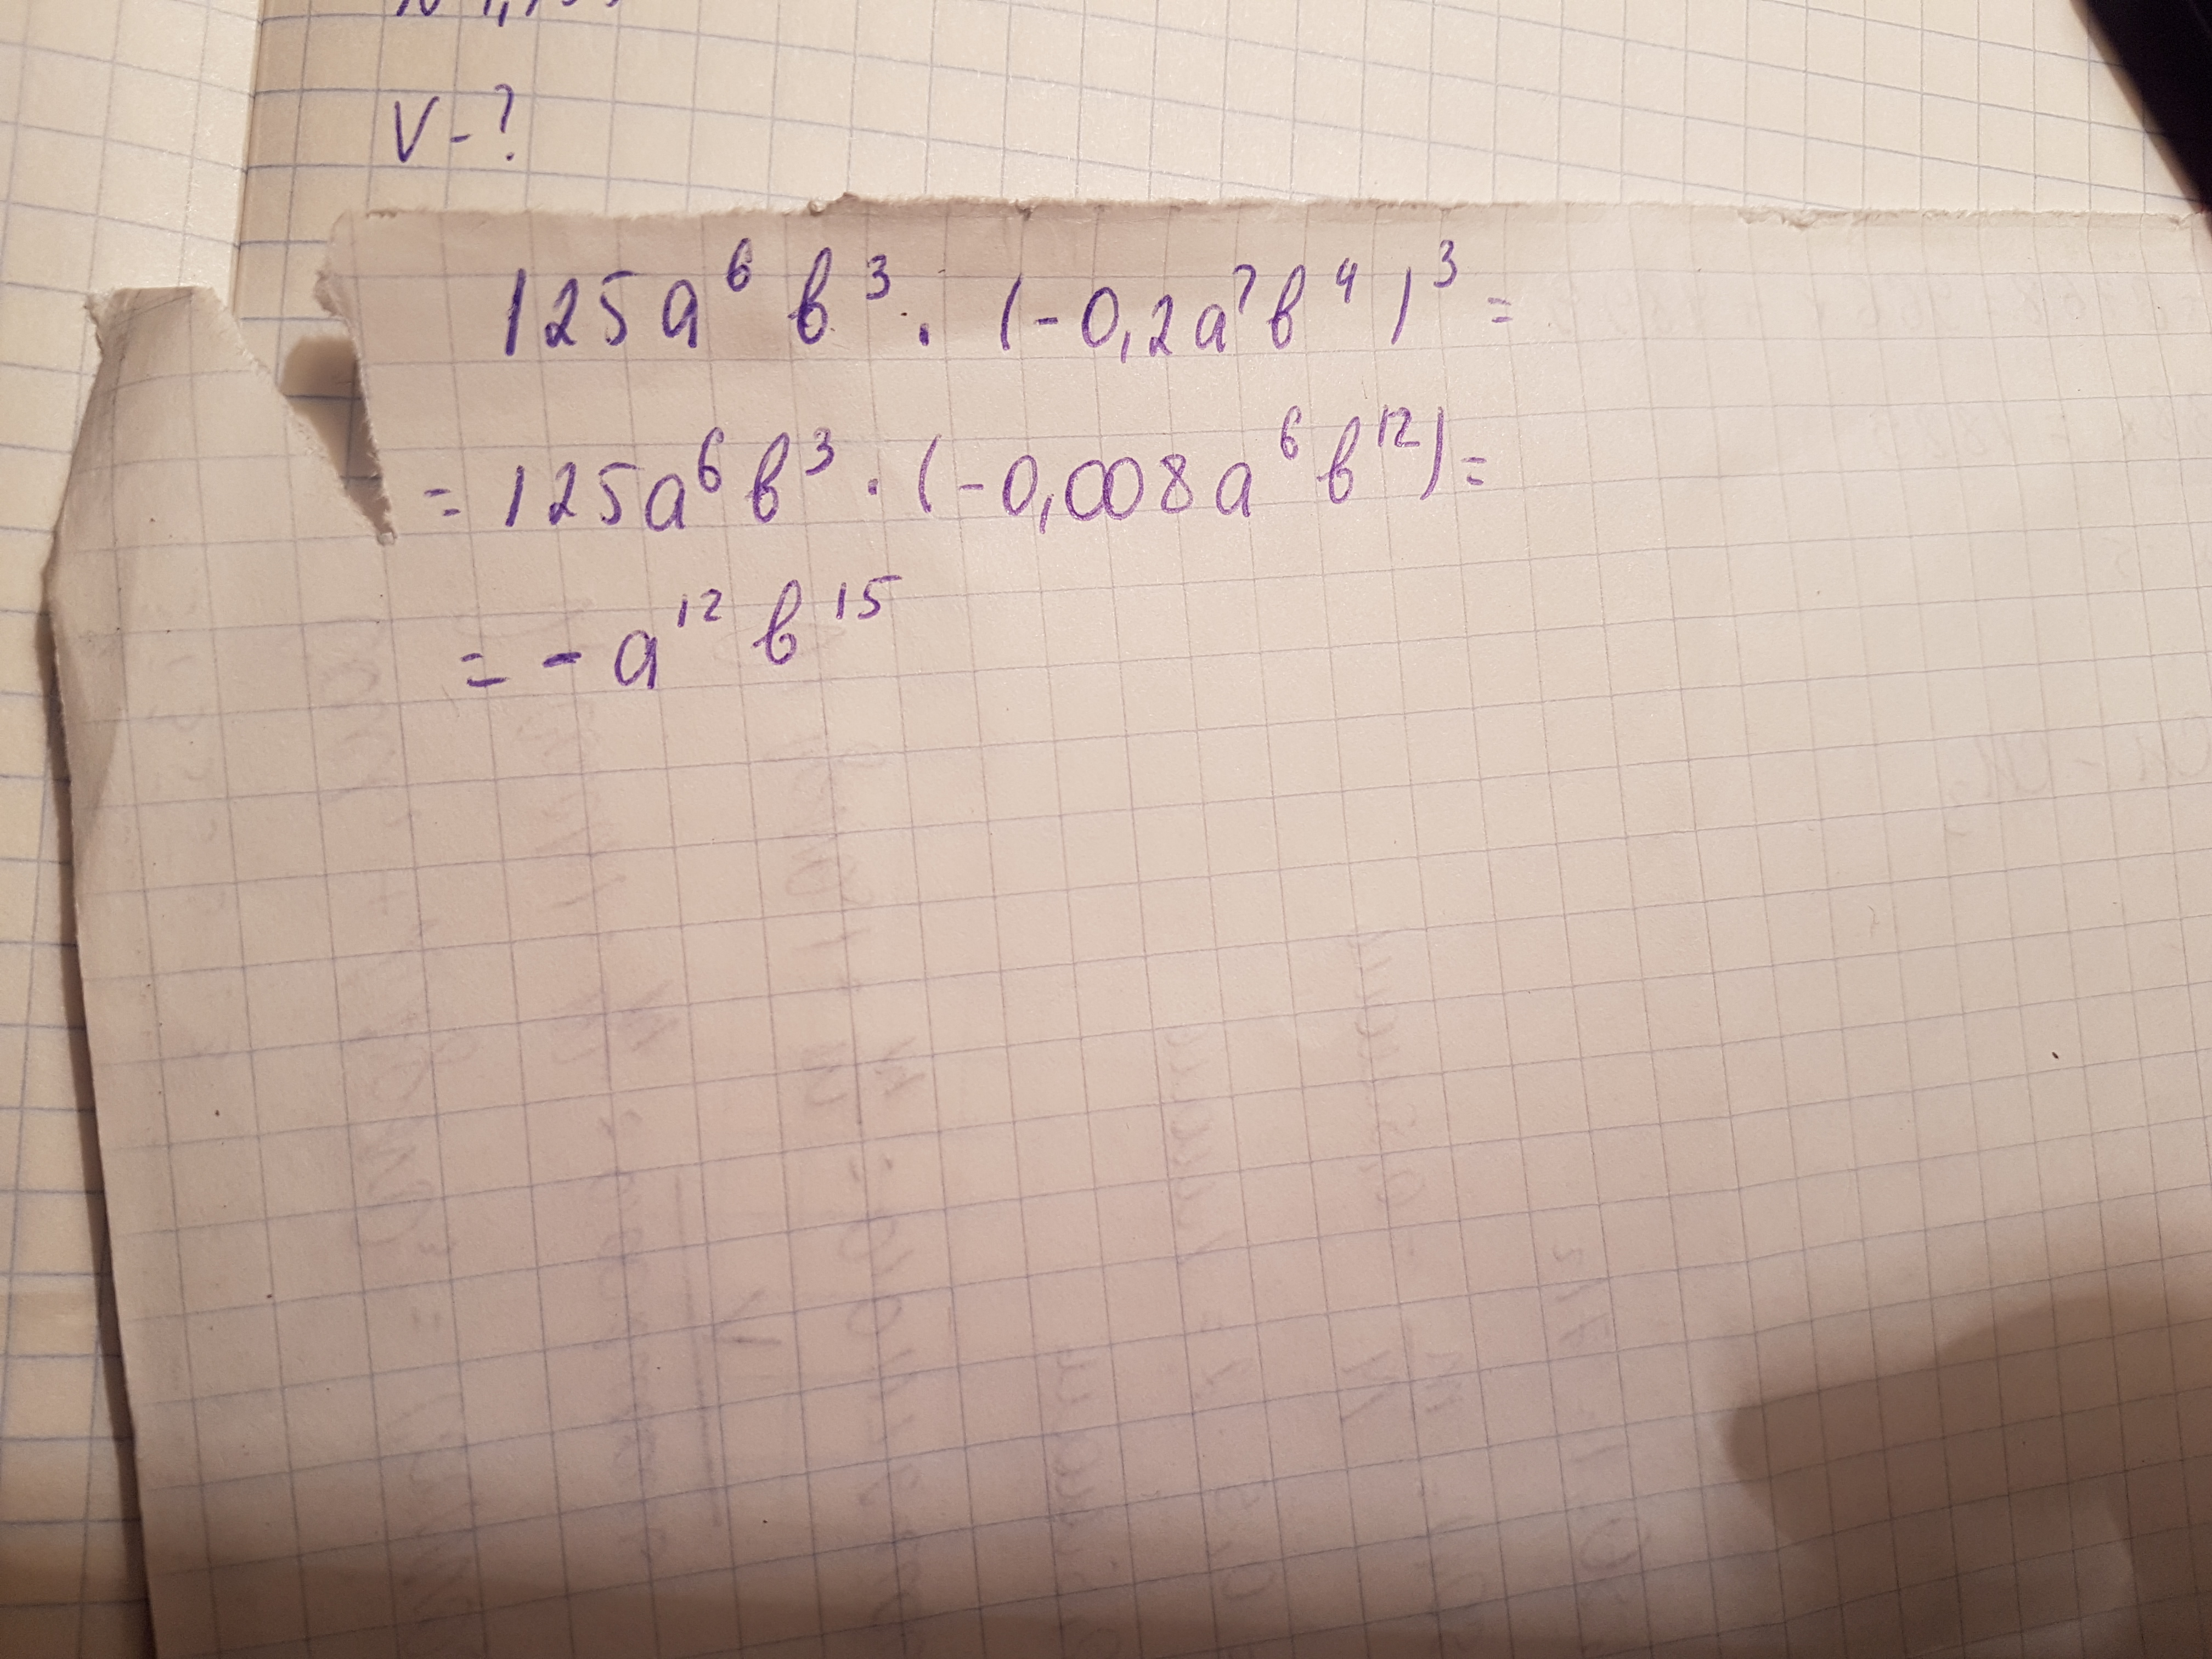 V - ?
125a⁶b³ · (-0,2a²b⁴)³ =
= 125a⁶b³ · (-0,008a⁶b¹²) =
= - a¹² b¹⁵